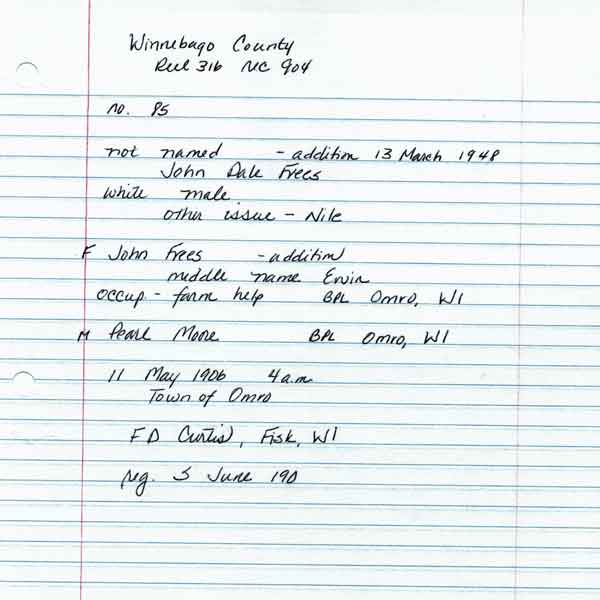 Winnebago County
Reel 316 MC 904
no. 85
not named - addition 13 March 1948
John Dale Frees
white male
other issue - Nile
F John Frees - addition
middle name Ervin
occup - farm help BPL Omro, WI
M Pearl Moore BPL Omro, WI
11 May 1906 4 a.m
Town of Omro
F D Curtis, Fisk, WI
reg. 5 June 190